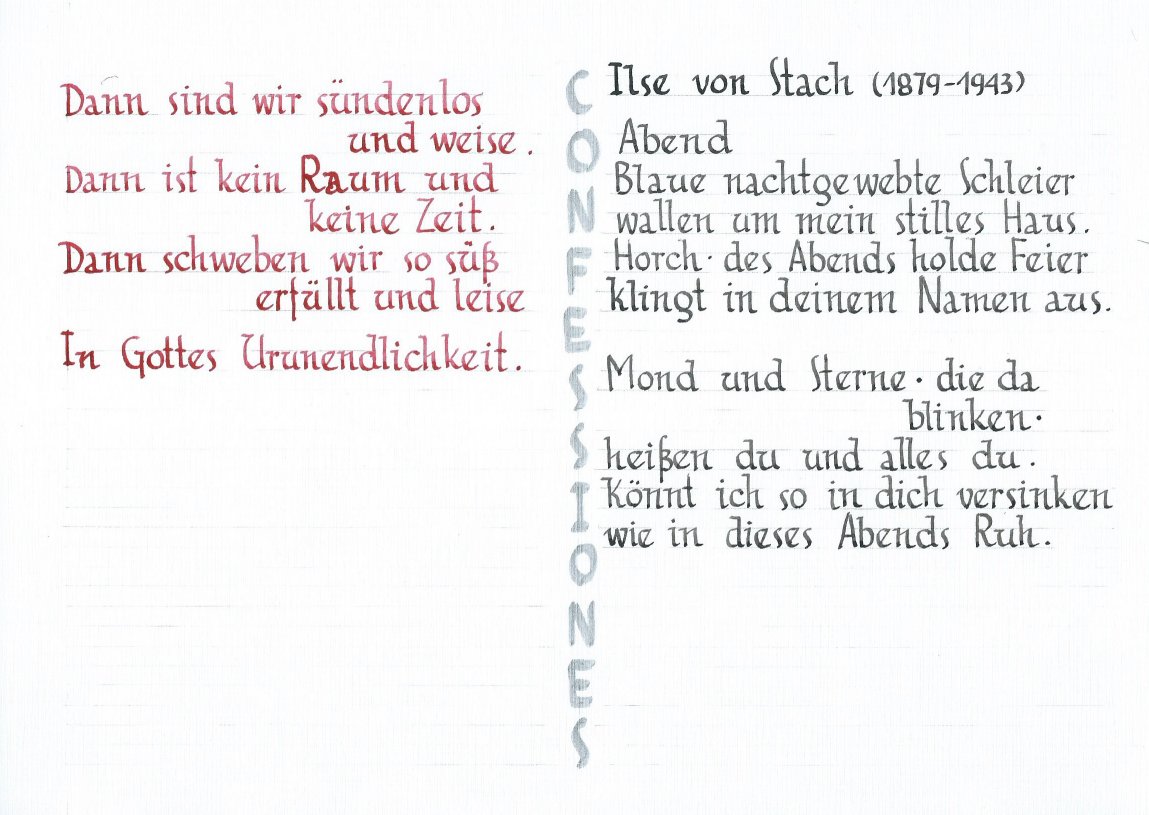 Dann sind wir sündenlos
und weise.
Dann ist kein Raum und
keine Zeit.
Dann schweben wir so süß
erfüllt und leise
In Gottes Urunendlichkeit.
CONFESSIONES
Ilse von Stach (1879-1943)
Abend
Blaue nachtgewebte Schleier
wallen um mein stilles Haus.
Horch· des Abends holde Feier
klingt in deinem Namen aus.
Mond und Sterne· die da
blinken·
heißen du und alles du.
Könnt ich so in dich versinken
wie in dieses Abends Ruh.